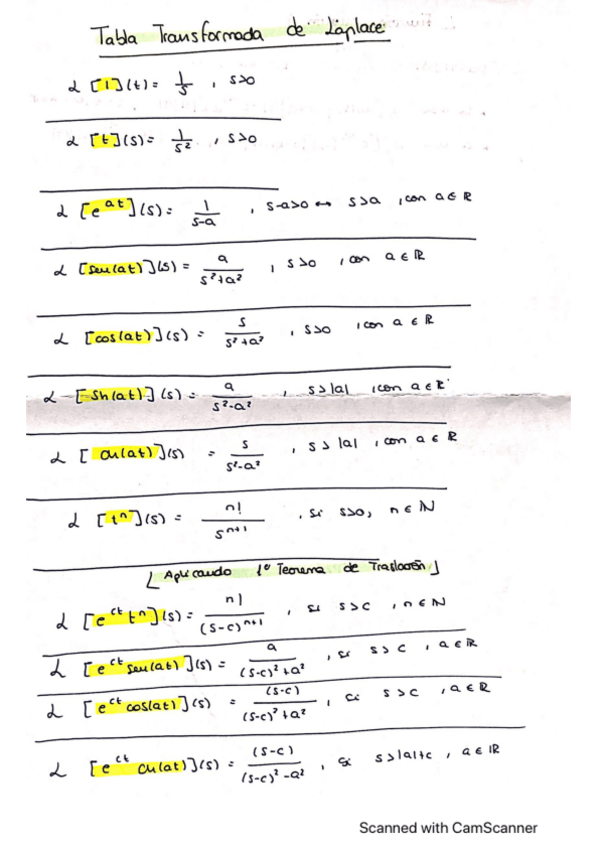 Tabla Transformada de Láplace
L [1](t) = 1/s , s>0
L [t](s) = 1/s² , s>0
L [e^at](s) = 1/(s-a) , s-a>0 ↔ s>a , con a ∈ ℝ
L [sen(at)](s) = a/(s²+a²) , s>0 , con a ∈ ℝ
L [cos(at)](s) = s/(s²+a²) , s>0 , con a ∈ ℝ
L [sh(at)](s) = a/(s²-a²) , s>|a| , con a ∈ ℝ
L [ch(at)](s) = s/(s²-a²) , s>|a| , con a ∈ ℝ
L [tⁿ](s) = n!/s^(n+1) , si s>0, n ∈ ℕ
[Aplicando 1º Teorema de Traslación]
L [e^ct tⁿ](s) = n!/(s-c)^(n+1) , si s>c , n ∈ ℕ
L [e^ct sen(at)](s) = a/((s-c)²+a²) , si s>c , a ∈ ℝ
L [e^ct cos(at)](s) = (s-c)/((s-c)²+a²) , si s>c , a ∈ ℝ
L [e^ct ch(at)](s) = (s-c)/((s-c)²-a²) , si s>|a|+c , a ∈ ℝ
Scanned with CamScanner